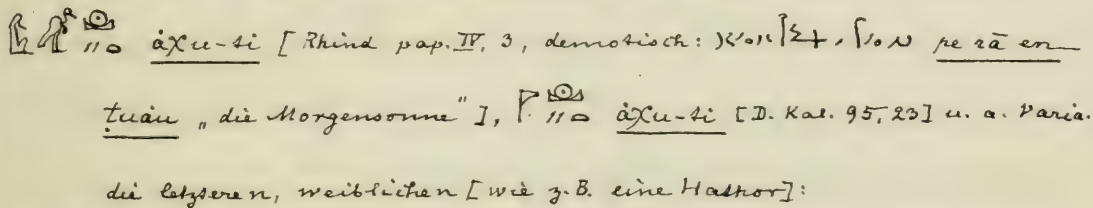 àχu-ti [Rhind pap. IV, 3, demotisch: pe rā en
tuàu „die Morgensonne"], àχu-ti [D. Kal. 95, 23] u. a. Varia.
die letzteren, weiblichen [wie z. B. eine Hathor]: